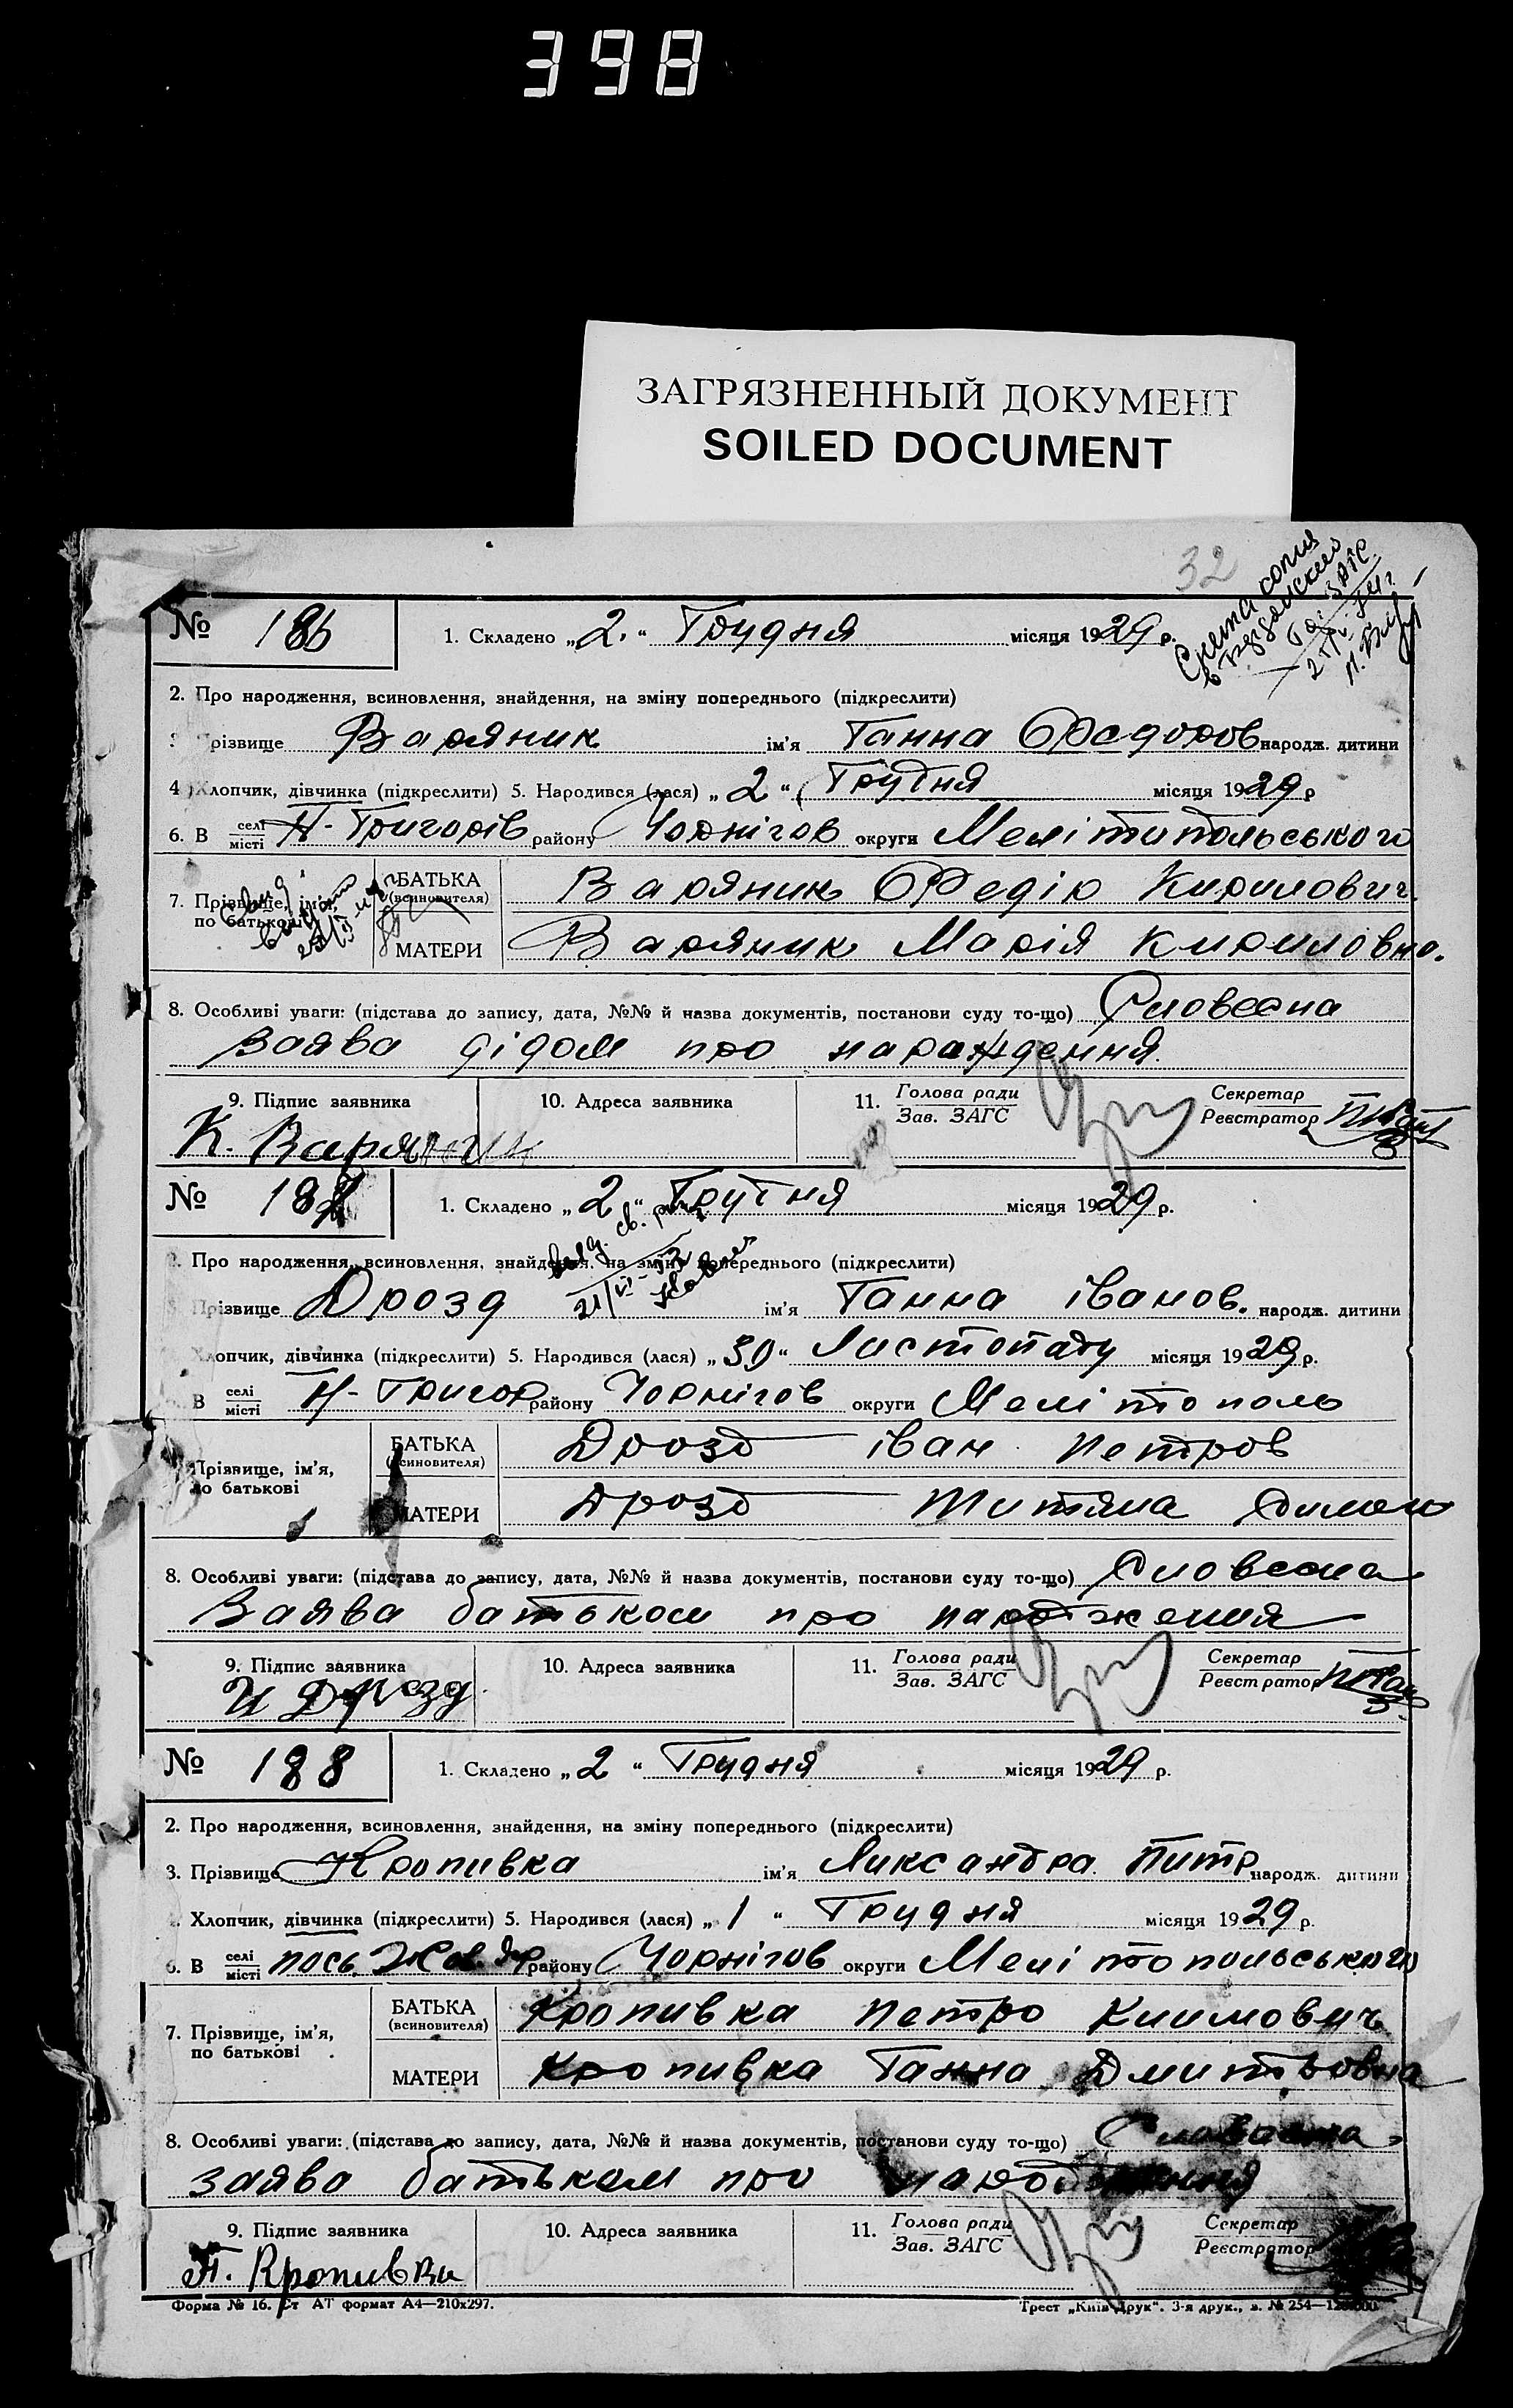 398
ЗАГРЯЗНЕННЫЙ ДОКУМЕНТ
SOILED DOCUMENT
32
Снята копия
№ 186 1. Складено „2." Грудня місяця 1929 р.
2. Про народження, всиновлення, знайдення, на зміну попереднього (підкреслити)
Прізвище Варяник ім'я Ганна Федоров народж. дитини
4 Хлопчик, дівчинка (підкреслити) 5. Народився (лася) „2" Грудня місяця 1929 р
6. В селі місті Н-Григорів району Чорнігов округи Мелітипольського
7. Прізвище, ім'я, по батькові БАТЬКА (всиновителя) Варяник Федір Кирилович
МАТЕРИ Варяник Марія Кириловна.
8. Особливі уваги: (підстава до запису, дата, №№ й назва документів, постанови суду то-що) Словесна
заява дідом про нараждення.
9. Підпис заявника 10. Адреса заявника 11. Голова ради Зав. ЗАГС Секретар Реєстратор
К. Варяник
№ 187 1. Складено „2" Грутня місяця 1929 р.
2. Про народження, всиновлення, знайдення, на зміну попереднього (підкреслити)
Прізвище Дрозд ім'я Ганна іванов. народж. дитини
Хлопчик, дівчинка (підкреслити) 5. Народився (лася) „30" Листопаду місяця 1929 р.
В селі місті Н-Григор району Чорнігов округи Мелітополь
Прізвище, ім'я, по батькові БАТЬКА (всиновителя) Дрозд іван Петров
МАТЕРИ Дрозд Титяна
8. Особливі уваги: (підстава до запису, дата, №№ й назва документів, постанови суду то-що) Словесна
Заява батьком про народження
9. Підпис заявника 10. Адреса заявника 11. Голова ради Зав. ЗАГС Секретар Реєстратор
И Дрозд
№ 188 1. Складено „2" Грудня місяця 1929 р.
2. Про народження, всиновлення, знайдення, на зміну попереднього (підкреслити)
3. Прізвище Кропивка ім'я Ликсандра Питр народж. дитини
Хлопчик, дівчинка (підкреслити) 5. Народився (лася) „1" Грудня місяця 1929 р.
6. В селі місті пось. району Чорнігов округи Мелітопольського
7. Прізвище, ім'я, по батькові БАТЬКА (всиновителя) Кропивка Петро Климович
МАТЕРИ Кропивка Ганна Дмитровна
8. Особливі уваги: (підстава до запису, дата, №№ й назва документів, постанови суду то-що) Славасна
заява батьком про
9. Підпис заявника 10. Адреса заявника 11. Голова ради Зав. ЗАГС Секретар Реєстратор
П. Кропивка
Форма № 16. Ст АТ формат А4—210х297. Трест „Київ-Друк". 3-я друк., з. № 254—